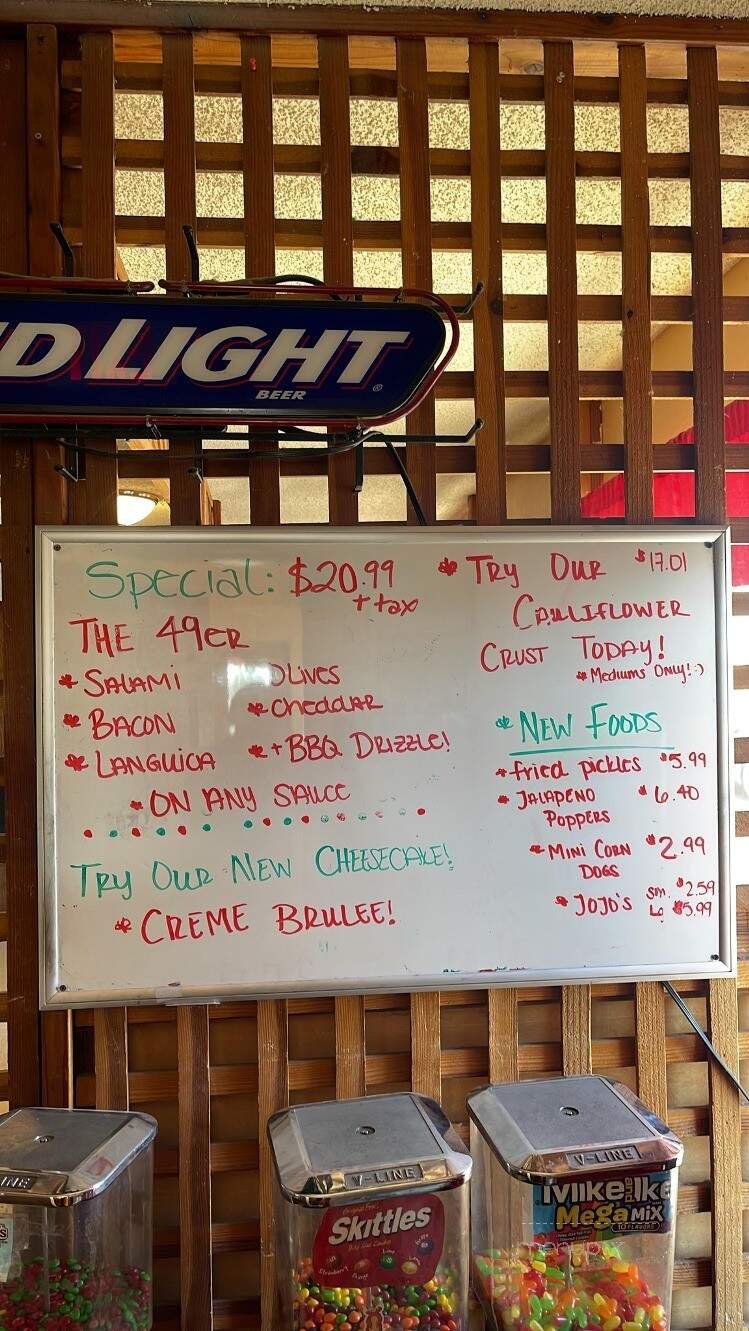 D LIGHT
BEER
Special: $20.99
+ tax
THE 49ER
* SALAMI
* BACON
* LANGUICA
OLIVES
* CHEDDAR
* + BBQ DRIZZLE!
* ON ANY SAUCE
TRY OUR NEW CHEESECAKE!
* CREME BRULEE!
* TRY OUR $17.01
CAULIFLOWER
CRUST TODAY!
* MEDIUMS ONLY! :)
* NEW FOODS
* fried pickles $5.99
* JALAPENO $6.40
POPPERS
* MINI CORN $2.99
DOGS
* JOJO'S SM. $2.59
LG $5.99
V-LINE
V-LINE
Skittles
Mike and Ike
Mega MIX
10 FLAVORS